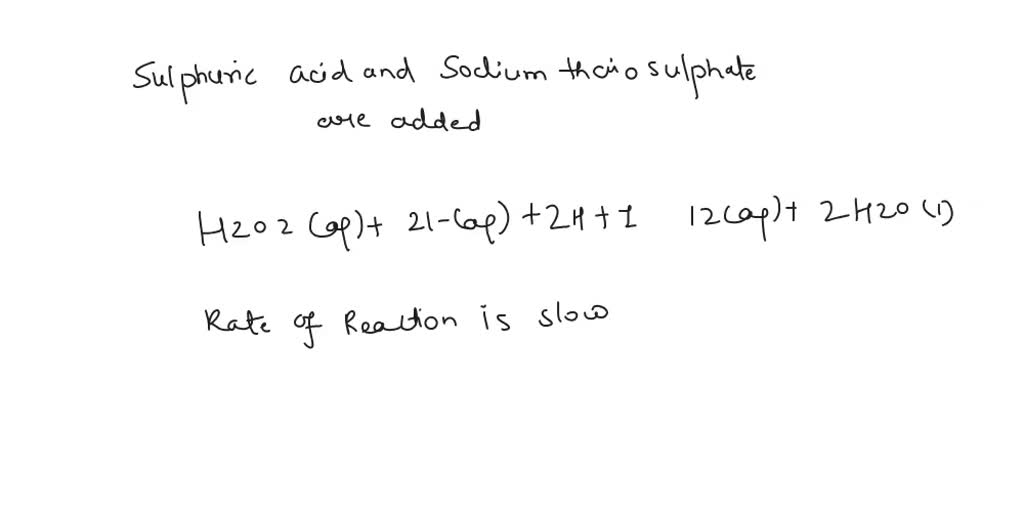 Sulphuric acid and Sodium thaiosulphate
are added
H2O2 (ap)+ 21-(ap)+2H+1 12(ap)+ 2H2O (1)
Rate of Reaction is slow